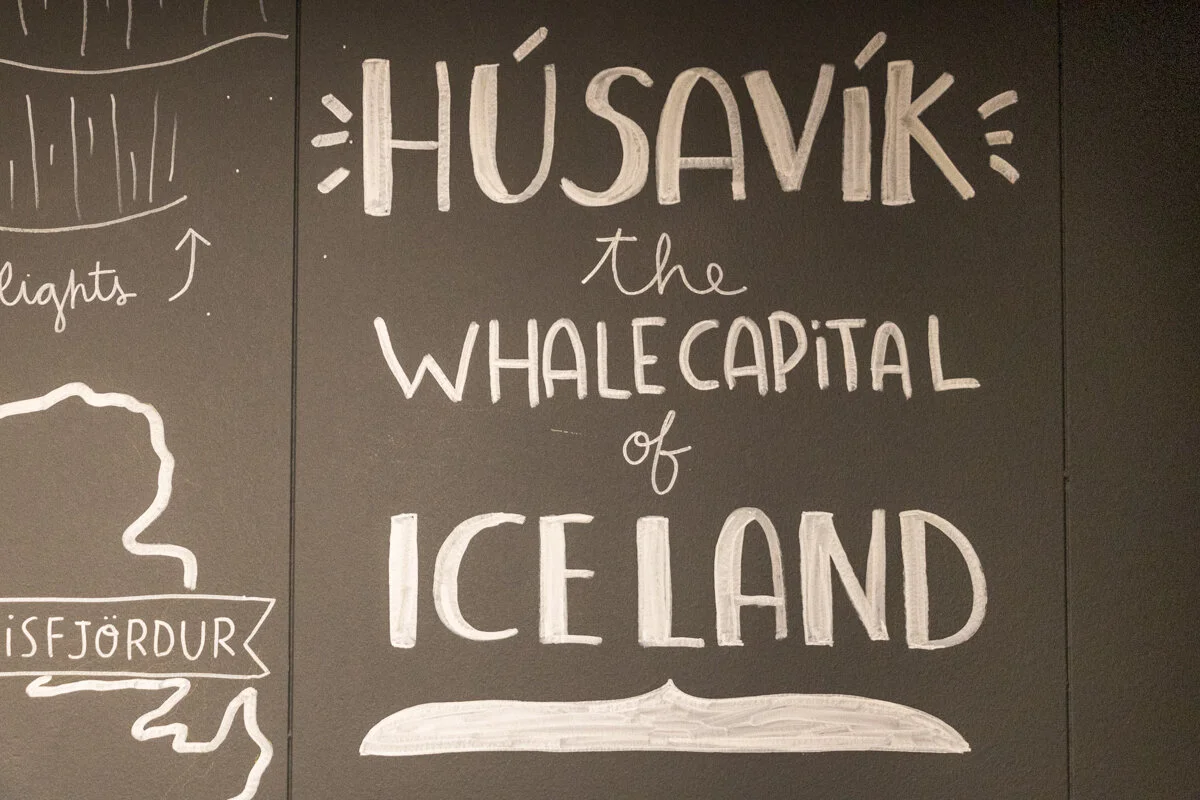 lights
iSFJÖRDUR
HÚSAVÍK
the
WHALECAPiTAL
of
ICELAND